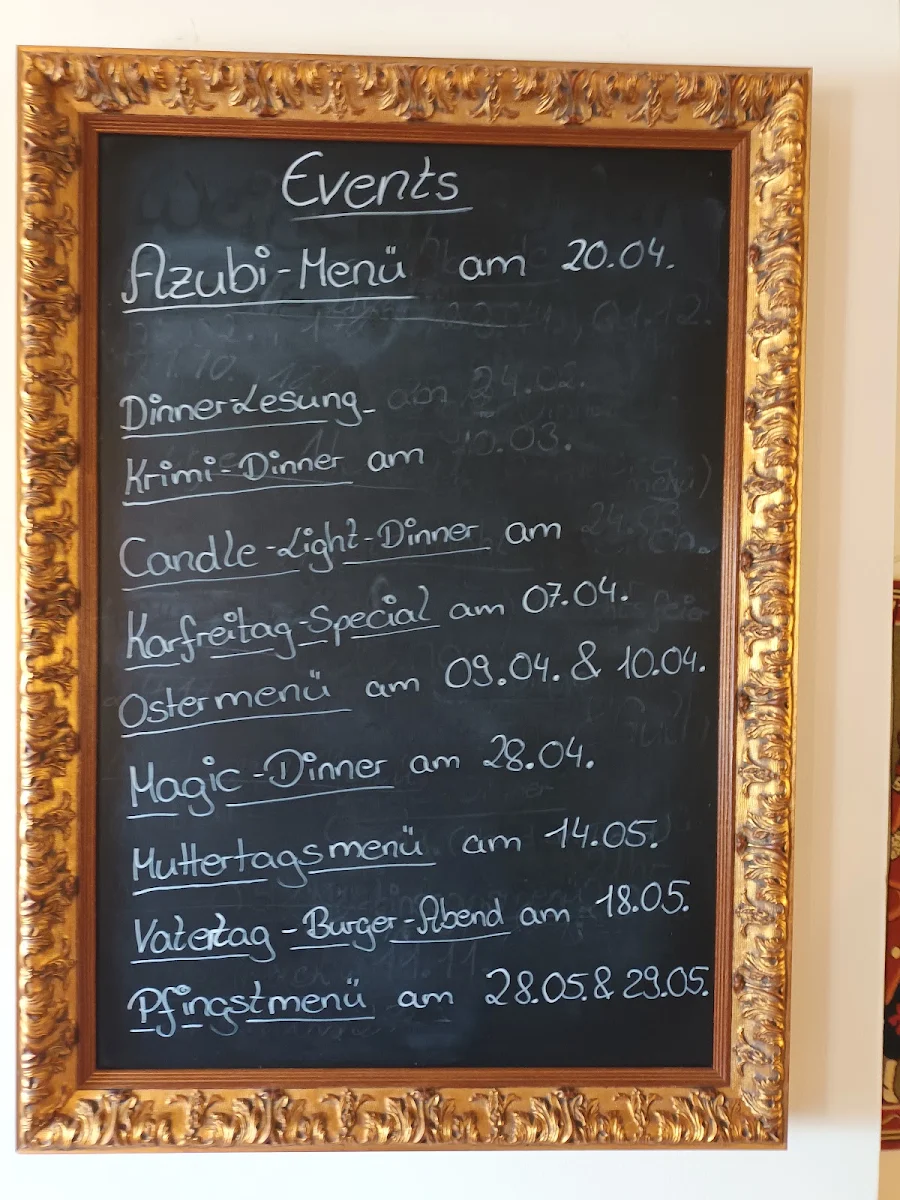 Events
Azubi-Menü am 20.04.
Dinner-Lesung am 24.02.
Krimi-Dinner am 10.03.
Candle-Light-Dinner am
Karfreitag-Special am 07.04.
Ostermenü am 09.04. & 10.04.
Magic-Dinner am 28.04.
Muttertagsmenü am 14.05.
Vatertag-Burger-Abend am 18.05.
Pfingstmenü am 28.05. & 29.05.